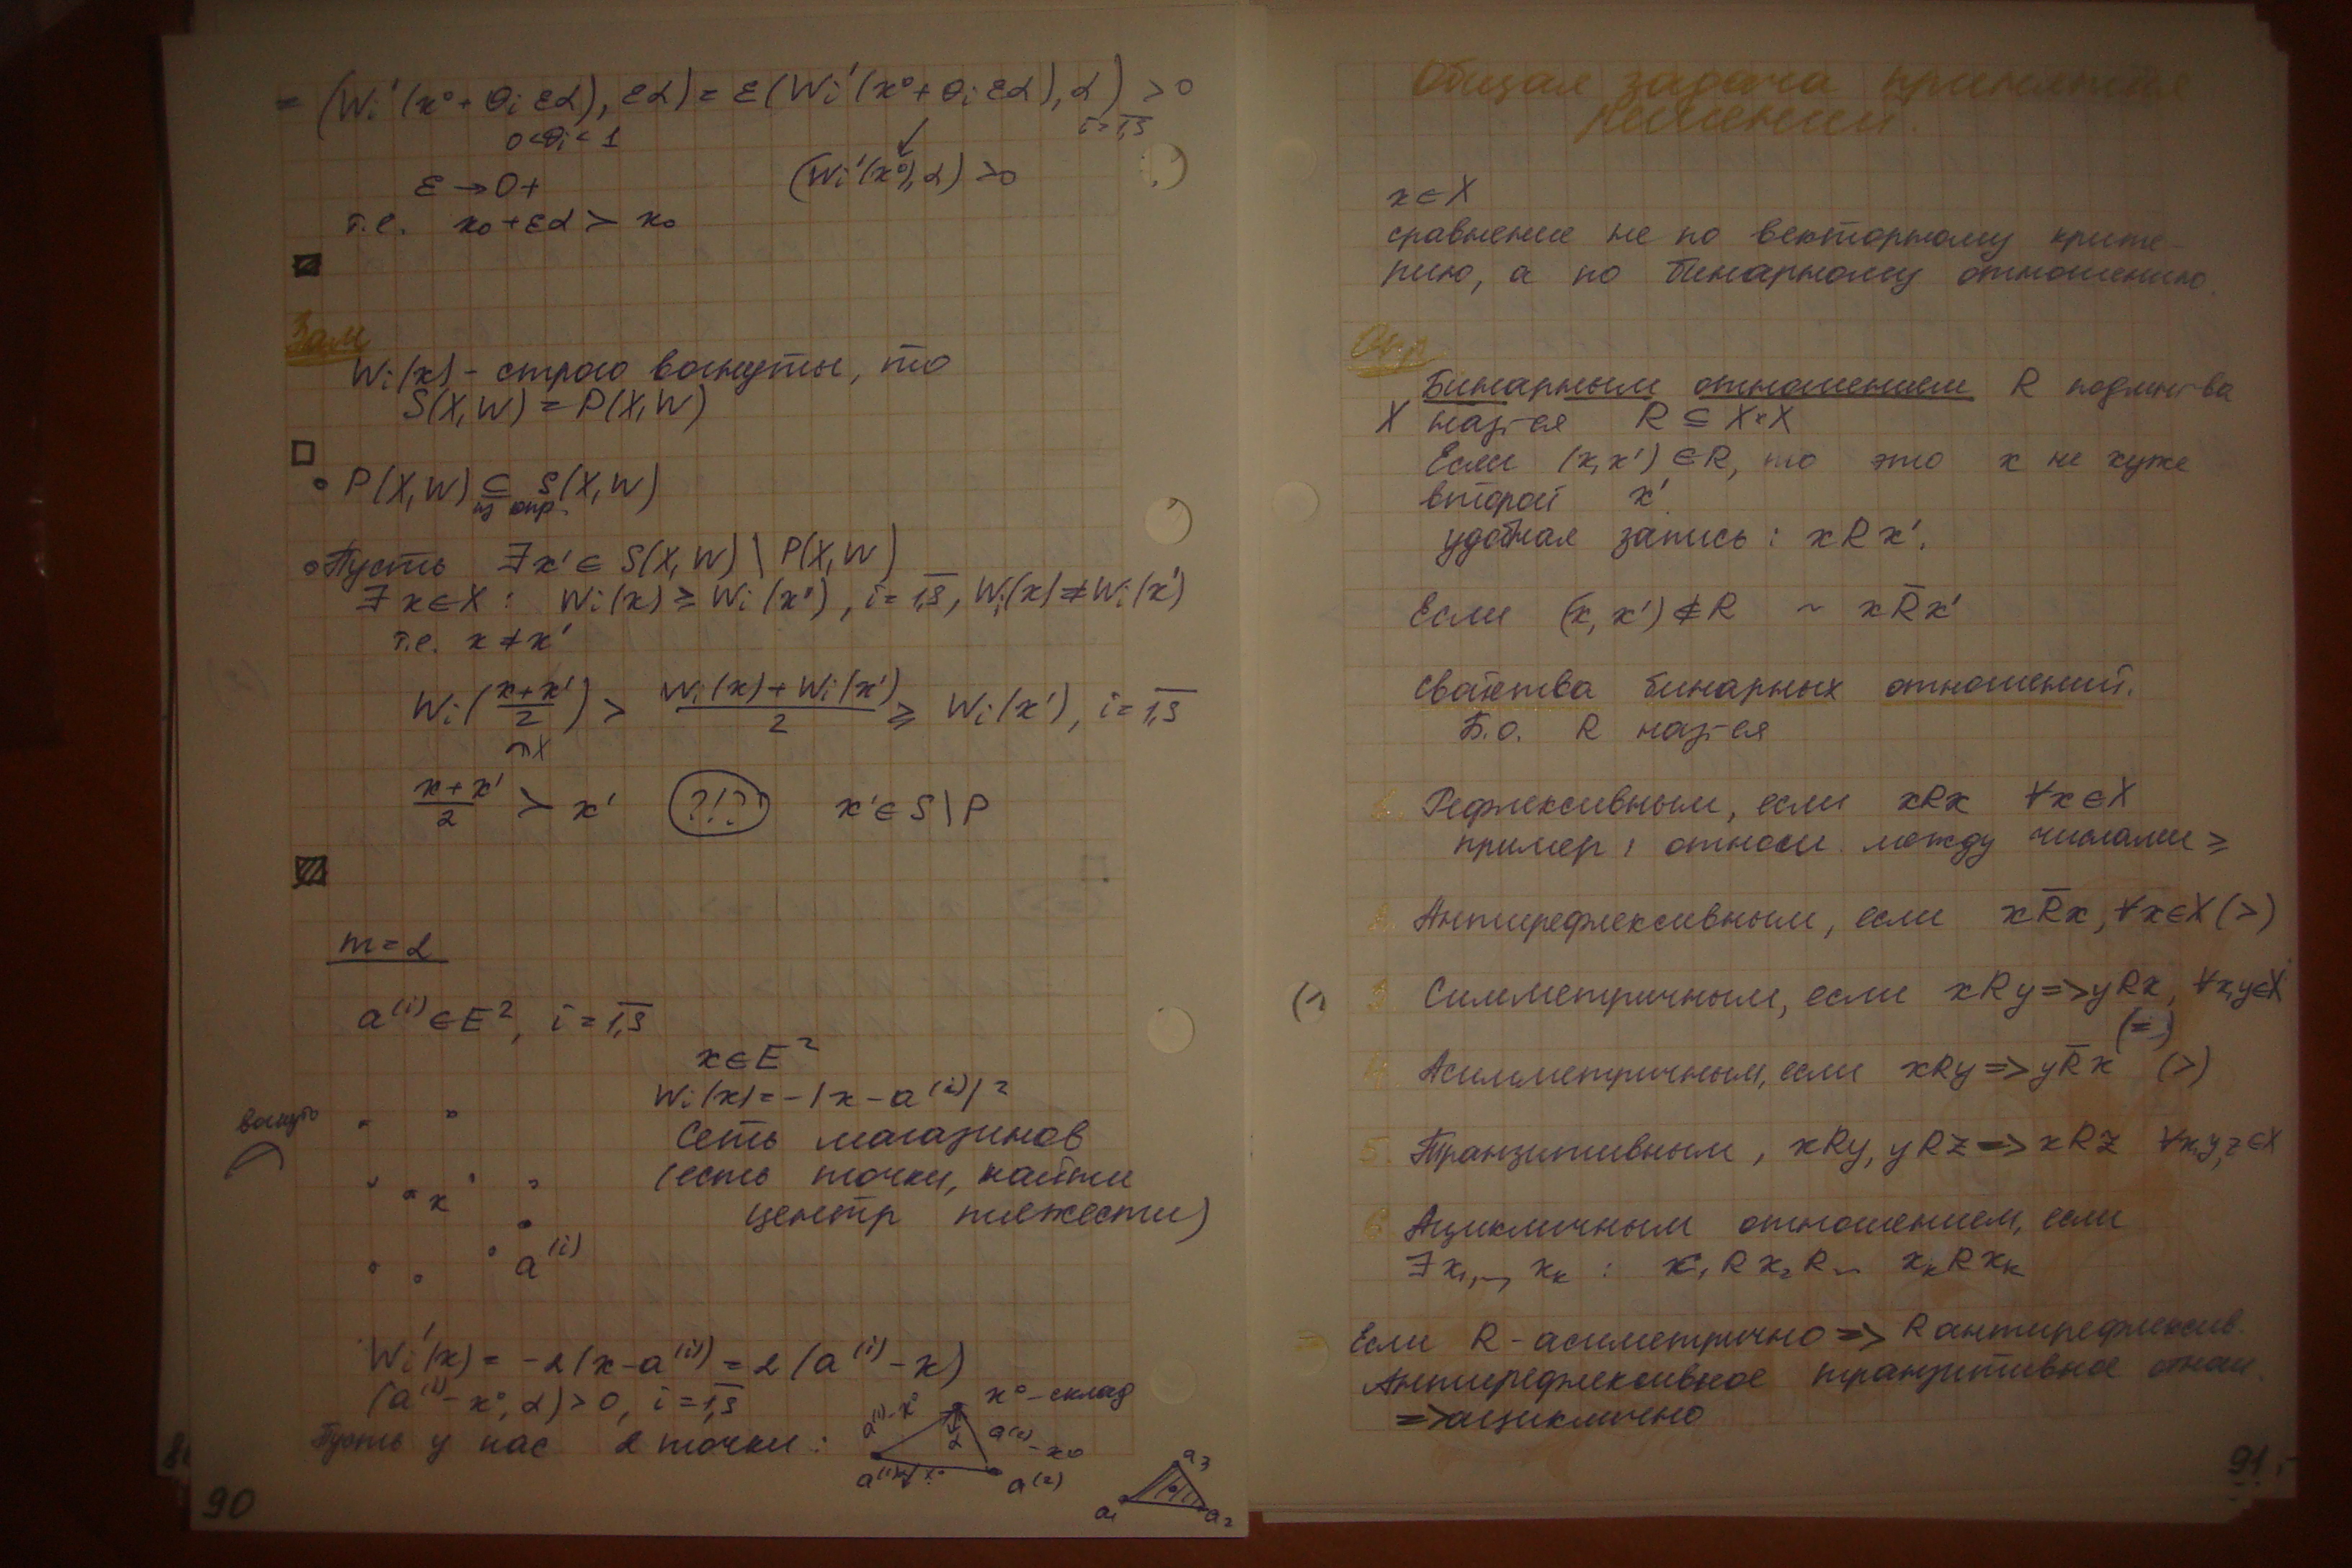 = (Wi'(x⁰ + θi εα), εα) = ε(Wi'(x⁰ + θi εα), α) > 0
0 < θi < 1
i = 1,s
ε → 0+
(Wi'(x⁰), α) > 0
т.е. x₀ + εα ≻ x₀
Зам
Wi(x) - строго вогнуты, то
S(X,W) = P(X,W)
• P(X,W) ⊆ S(X,W)
из опр.
• Пусть ∃x' ∈ S(X,W) \ P(X,W)
∃ x ∈ X : Wi(x) ≥ Wi(x'), i = 1,s, Wi(x) ≠ Wi(x')
т.е. x ≠ x'
Wi((x+x')/2) > (Wi(x) + Wi(x'))/2 ≥ Wi(x'), i = 1,s
∈X
(x+x')/2 ≻ x' (?!?) x' ∈ S \ P
m = 2
a⁽ⁱ⁾ ∈ E², i = 1,s
x ∈ E²
Wi(x) = -|x - a⁽ⁱ⁾|²
Сеть магазинов
(есть точки, найти
центр тяжести)
x
a⁽ⁱ⁾
Wi'(x) = -2(x - a⁽ⁱ⁾) = 2(a⁽ⁱ⁾ - x)
(a⁽ⁱ⁾ - x⁰, α) > 0, i = 1,s
Пусть у нас 2 точки :
x⁰ - склад
a⁽¹⁾ - x⁰
α
a⁽²⁾ - x⁰
a⁽¹⁾
a⁽²⁾
a₃
a₁
a₂
90
Общая задача принятия
решений.
x ∈ X
сравнение не по векторному крите-
рию, а по бинарному отношению.
Опр
Бинарным отношением R подмн-ва
X наз-ся R ⊆ X×X
Если (x, x') ∈ R, то это x не хуже
второй x'
удобная запись : xRx'.
Если (x, x') ∉ R ~ xR̅x'
Свойства бинарных отношений.
Б.О. R наз-ся
1. Рефлексивным, если xRx ∀x∈X
пример : относи. между числами ≥
2. Антирефлексивным, если xR̅x, ∀x∈X (>)
3. Симметричным, если xRy => yRx, ∀x,y∈X
(=)
4. Асимметричным, если xRy => yR̅x (>)
5. Транзитивным, xRy, yRz => xRz ∀x,y,z∈X
6. Ацикличным отношением, если
∃ x₁,..., xₖ : x₁Rx₂R... xₖRxₖ
Если R - асиметрично => R антирефлексив.
Антирефлексивное транзитивное отнош.
=> ациклично
91